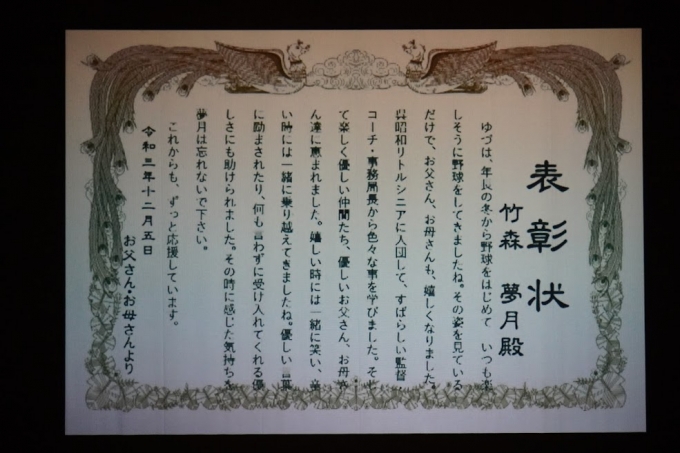 表彰状
竹森 夢月殿
ゆづは、年長の冬から野球をはじめて いつも楽
しそうに野球をしてきましたね。その姿を見ている
だけで、お父さん、お母さんも、嬉しくなりました。
呉昭和リトルシニアに入団して、すばらしい監督・
コーチ・事務局長から色々な事を学びました。そし
て楽しく優しい仲間たち、優しいお父さん、お母さ
ん達に恵まれました。嬉しい時には一緒に笑い、辛
い時には一緒に乗り越えてきましたね。優しい言葉
に励まされたり、何も言わずに受け入れてくれる優
しさにも助けられました。その時に感じた気持ちを
夢月は忘れないで下さい。
これからも、ずっと応援しています。
令和三年十二月五日
お父さん・お母さんより